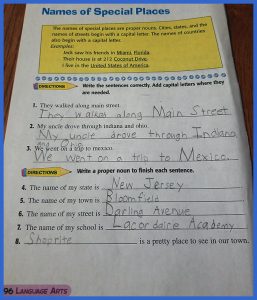 Names of Special Places
The names of special places are proper nouns. Cities, states, and the
names of streets begin with a capital letter. The names of countries
also begin with a capital letter.
Examples:
Jack saw his friends in Miami, Florida.
Their house is at 212 Coconut Drive.
I live in the United States of America.
DIRECTIONS Write the sentences correctly. Add capital letters where they
are needed.
1. They walked along main street.
They walked along Main Street
2. My uncle drove through indiana and ohio.
My uncle drove through Indiana
and Ohio
3. We went on a trip to mexico.
We went on a trip to Mexico.
DIRECTIONS Write a proper noun to finish each sentence.
4. The name of my state is New Jersey
5. The name of my town is Bloomfield
6. The name of my street is Darling Avenue
7. The name of my school is Lacordaire Academy
8. Shoprite is a pretty place to see in our town.
96 LANGUAGE ARTS